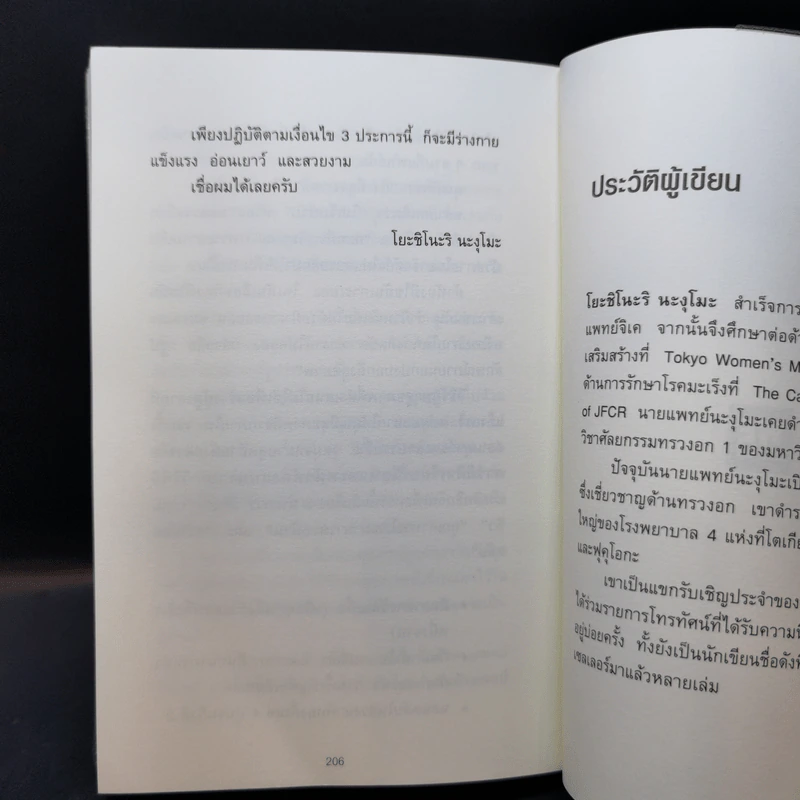 เพียงปฏิบัติตามเงื่อนไข 3 ประการนี้ ก็จะมีร่างกาย
แข็งแรง อ่อนเยาว์ และสวยงาม
เชื่อผมได้เลยครับ
โยะชิโนะริ นะงุโมะ
206
ประวัติผู้เขียน
โยะชิโนะริ นะงุโมะ สำเร็จการ
แพทย์จิเค จากนั้นจึงศึกษาต่อด้
เสริมสร้างที่ Tokyo Women's M
ด้านการรักษาโรคมะเร็งที่ The Ca
of JFCR นายแพทย์นะงุโมะเคยดำ
วิชาศัลยกรรมทรวงอก 1 ของมหาวิ
ปัจจุบันนายแพทย์นะงุโมะเป็
ซึ่งเชี่ยวชาญด้านทรวงอก เขาดำร
ใหญ่ของโรงพยาบาล 4 แห่งที่โตเกีย
และฟุคุโอกะ
เขาเป็นแขกรับเชิญประจำของ
ได้ร่วมรายการโทรทัศน์ที่ได้รับความนิ
อยู่บ่อยครั้ง ทั้งยังเป็นนักเขียนชื่อดังที
เซลเลอร์มาแล้วหลายเล่ม